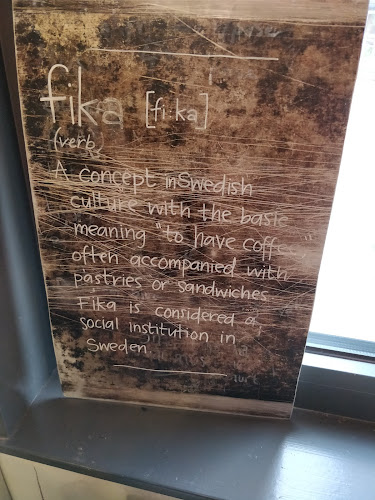 fika [fi:ka]
(verb)
A concept in Swedish
culture with the basic
meaning "to have coffee,"
often accompanied with
pastries or sandwiches
Fika is considered a
social institution in
Sweden.